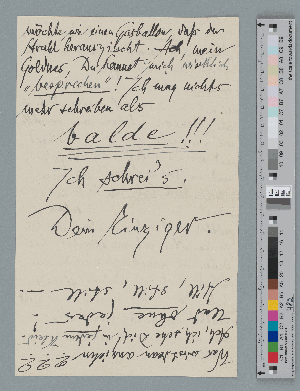 möchte wie einen Gasballon, daß der
Strahl herauszischt. Ach, mein
Goldner, Du kannst mich wirklich
„besprechen"! Ich mag nichts
mehr schreiben als
balde!!!
Ich schrei's.
Dein Einziger.
Wer wird was anziehen ???
Ach, ich sehe Dich in jedem Kleid!
Und ohne jedes!
still, still, still –